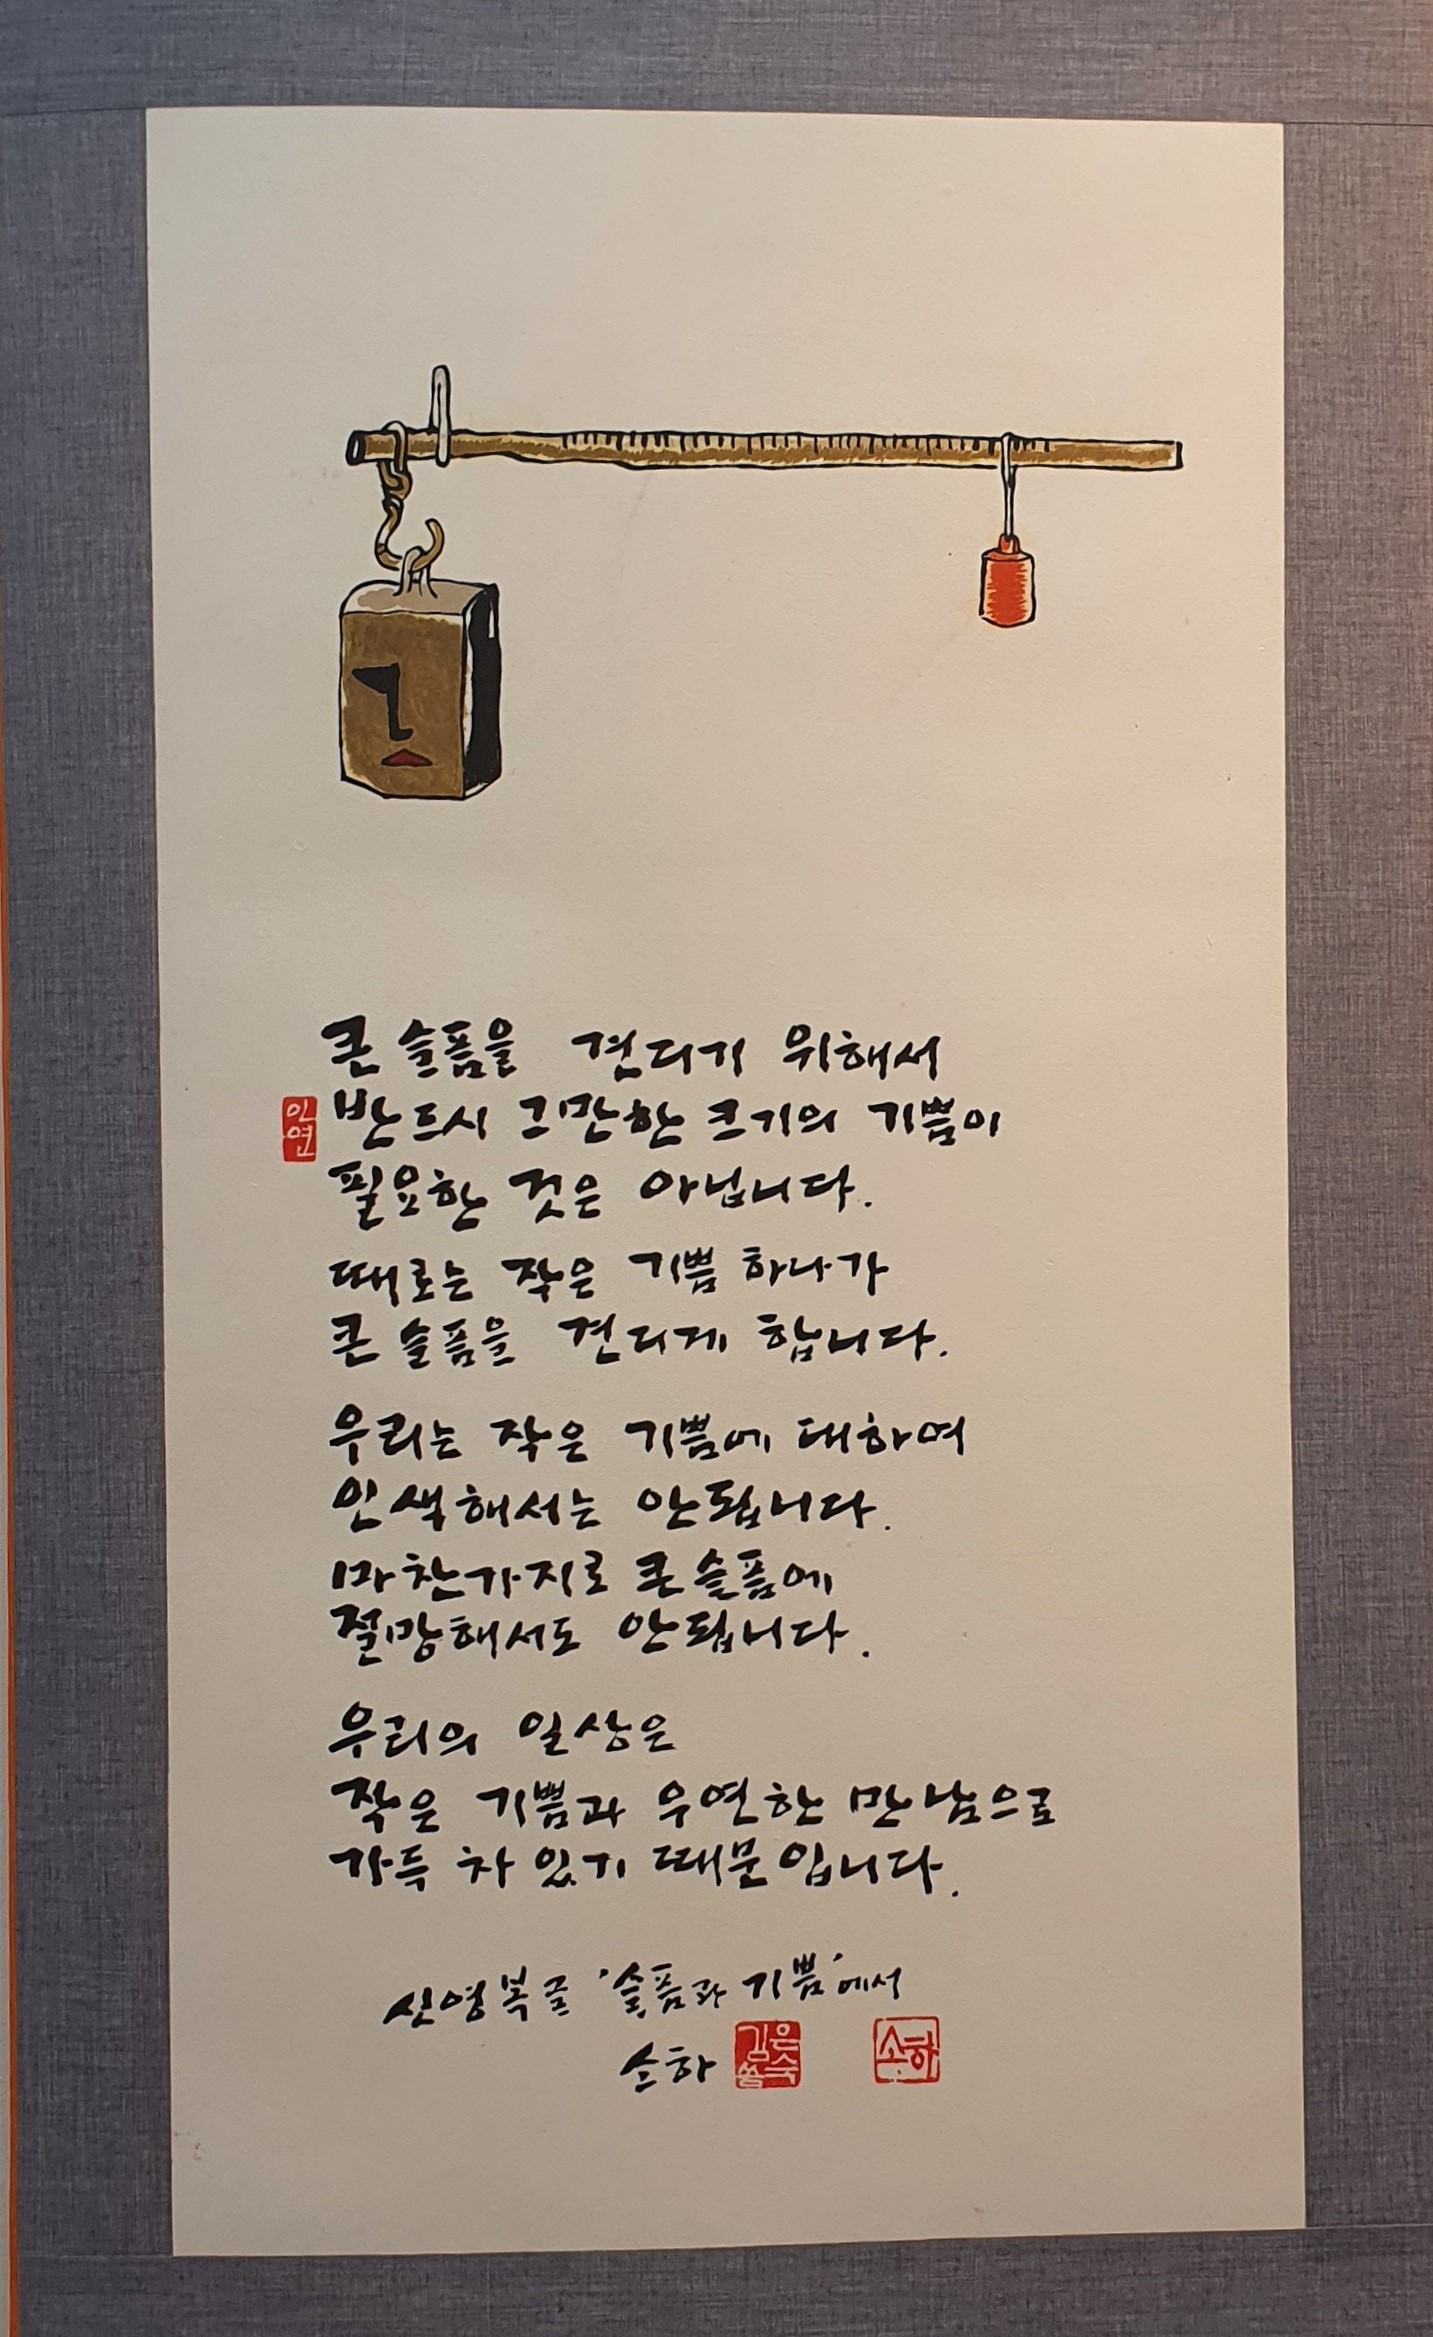 큰 슬픔을 견디기 위해서
인연
반드시 그만한 크기의 기쁨이
필요한 것은 아닙니다.
때로는 작은 기쁨 하나가
큰 슬픔을 견디게 합니다.
우리는 작은 기쁨에 대하여
인색해서는 안됩니다.
마찬가지로 큰 슬픔에
절망해서도 안됩니다.
우리의 일상은
작은 기쁨과 우연한 만남으로
가득 차 있기 때문입니다.
신영복 글 '슬픔과 기쁨'에서
소하
김은숙
소하